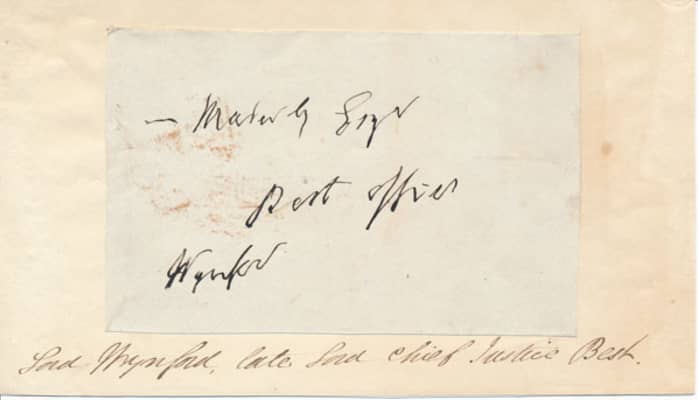 — Maberly Esqr
Post Office
Wynford
Lord Wynford, late Lord Chief Justice Best.